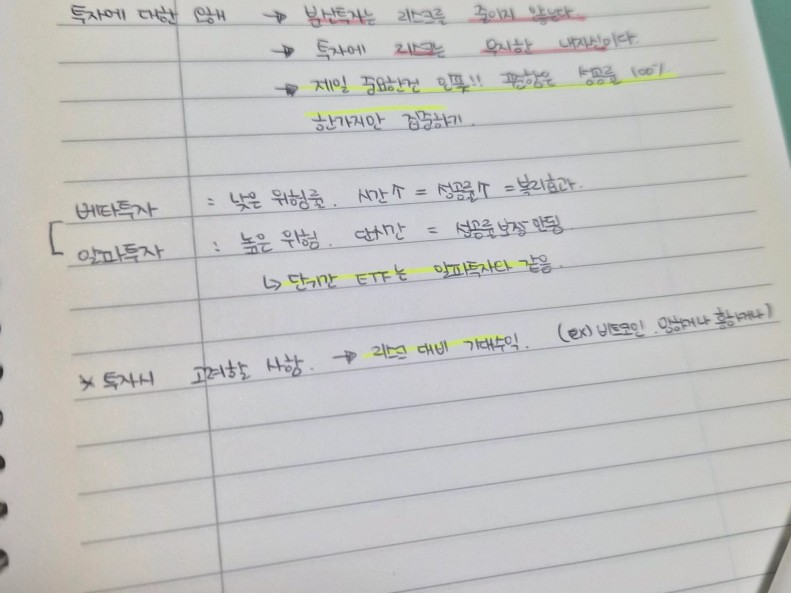 투자에 대한 오해 → 분산투자는 리스크를 줄이지 않는다.
→ 투자에 리스크는 무지한 내자신이다.
→ 제일 중요한건 인풋!! 편향은 성공률 100%
한가지만 집중하기.
베타투자 : 낮은 위험률. 시간↑ = 성공률↑ = 복리효과.
알파투자 : 높은 위험. 단시간 = 성공률 보장 안됨
↳ 단기간 ETF는 알파투자와 같음.
* 투자시 고려할 사항. → 리스크 대비 기대수익. (ex) 비트코인 망하거나 흥하거나)